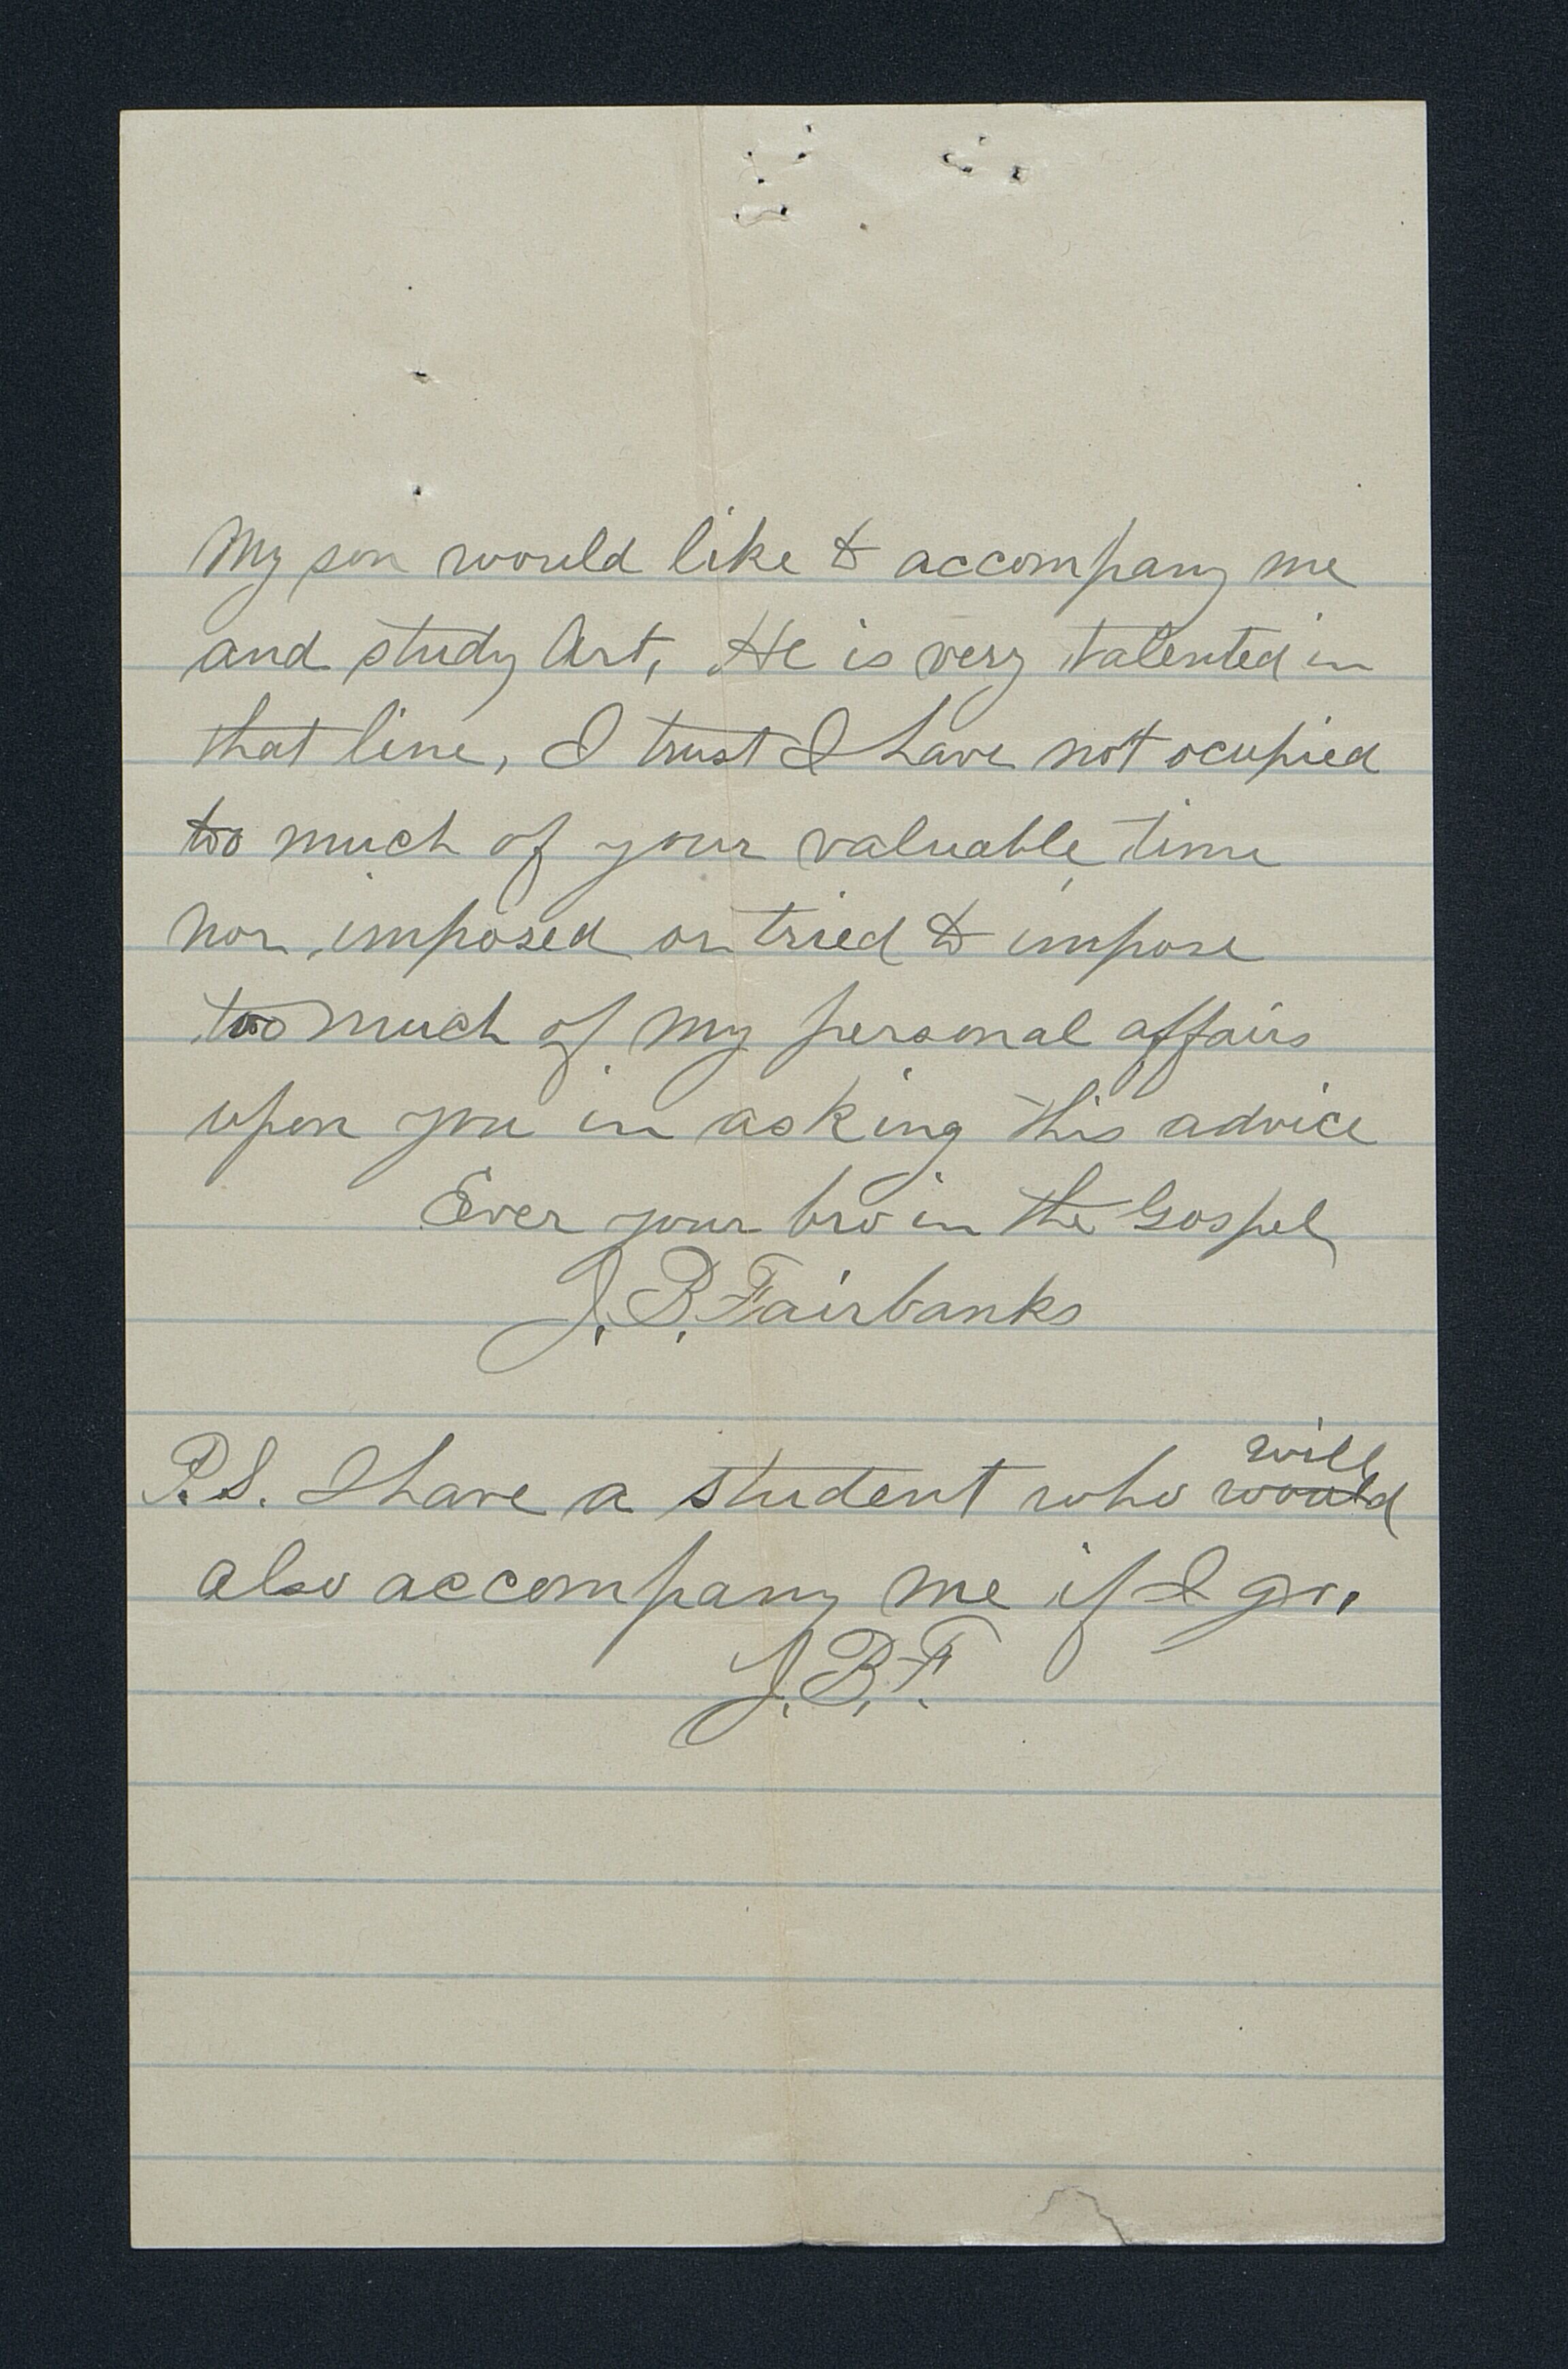 My son would like to accompany me
and study Art, He is very talented in
that line, I trust I have not ocupied
too much of your valuable time
nor imposed or tried to impose
too much of my personal affairs
upon you in asking this advice
Ever your bro in the Gospel
J. B. Fairbanks
will
P.S. I have a student who would
also accompany me if I go.
J. B. F.